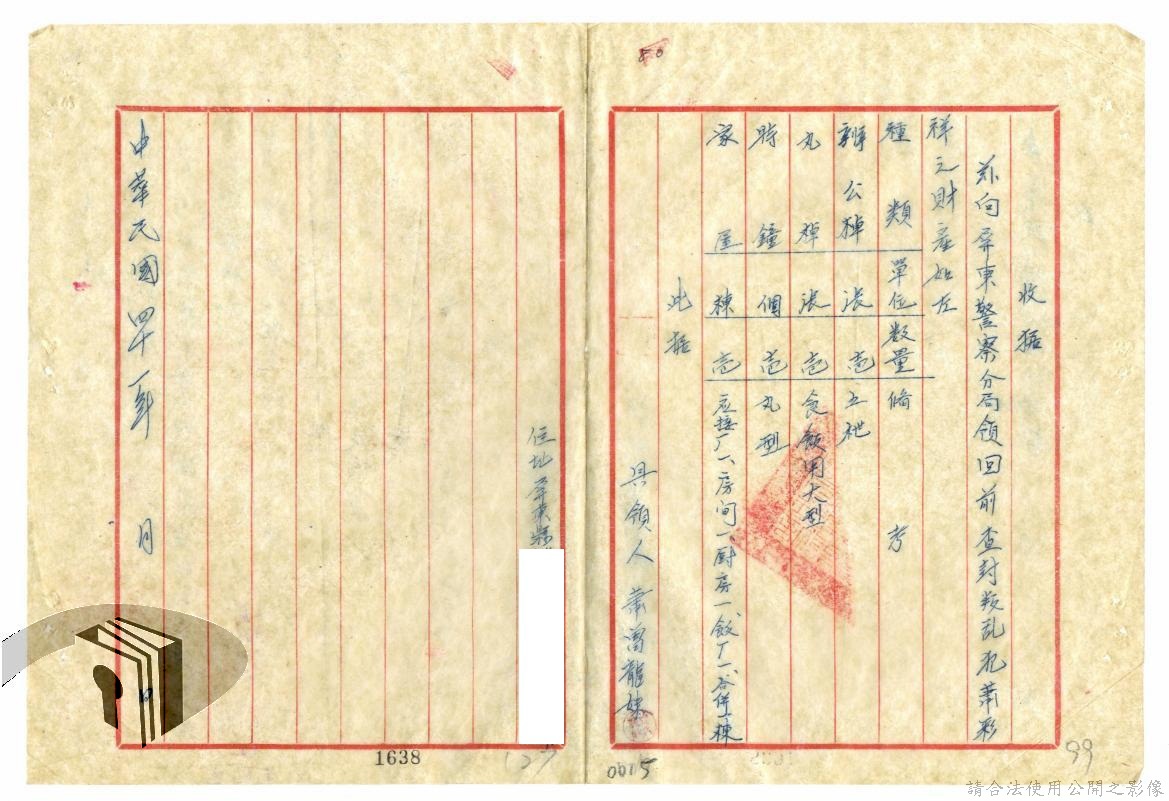 收据
茲向屏東警察分局領回前查封叛乱犯蕭彩
祥之財產如左
種類 單位 数量 俻考
辦公棹 張 壱
丸棹 張 壱 食飯用大型
時鐘 個 壱 丸型
家屋 棟 壱 应接厂一、房间一、厨房一、飯厂一、合併一棟
此据
具領人 蕭曾龍妹
住址 屏東縣
中華民國四十一年 月 日
80
1638
0015
99
請合法使用公開之影像